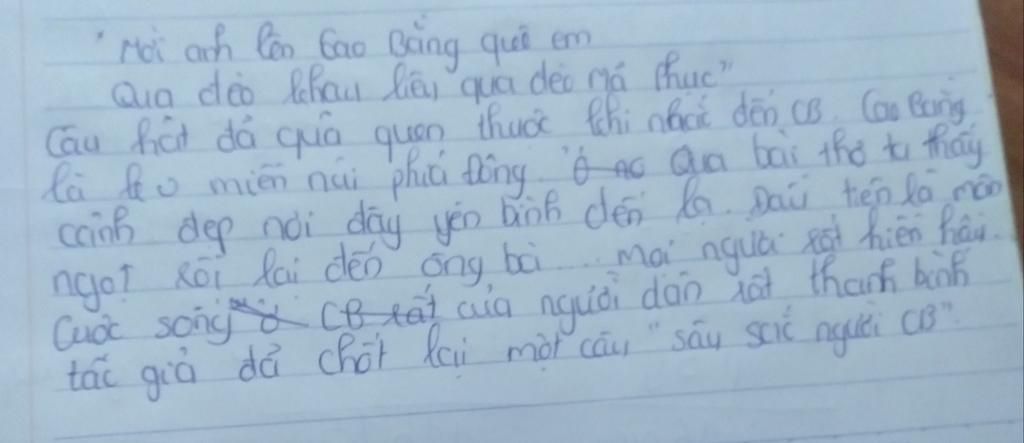 "Mời anh lên Cao Bằng quê em
Qua đèo Khau Liêu qua đèo Mã Phục"
Câu hát đã quá quen thuộc khi nhắc đến CB. Cao Bằng
là miền núi phía đông. Qua bài thơ ta thấy
cảnh đẹp nơi đây yên bình đến lạ. Đầu tiên là mận
ngọt rồi lại đến ông bà... mọi người rất hiền hậu.
Cuộc sống của người dân rất thanh bình
tác giả đã chốt lại một câu "sâu sắc người CB".